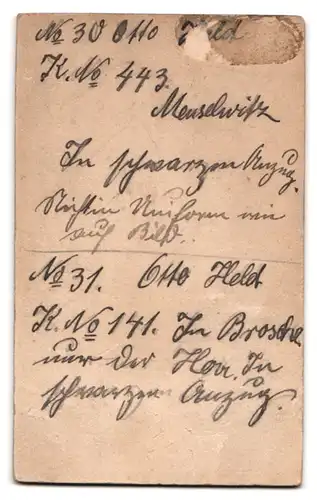 No 30 Otto Held
K. No 443.
Meuselwitz
In schwarzen Anzug.
Nicht in Uniform wie
auf Bild.
No 31. Otto Held
K. No 141. In Brosche
nur der Herr. In
schwarzen Anzug.